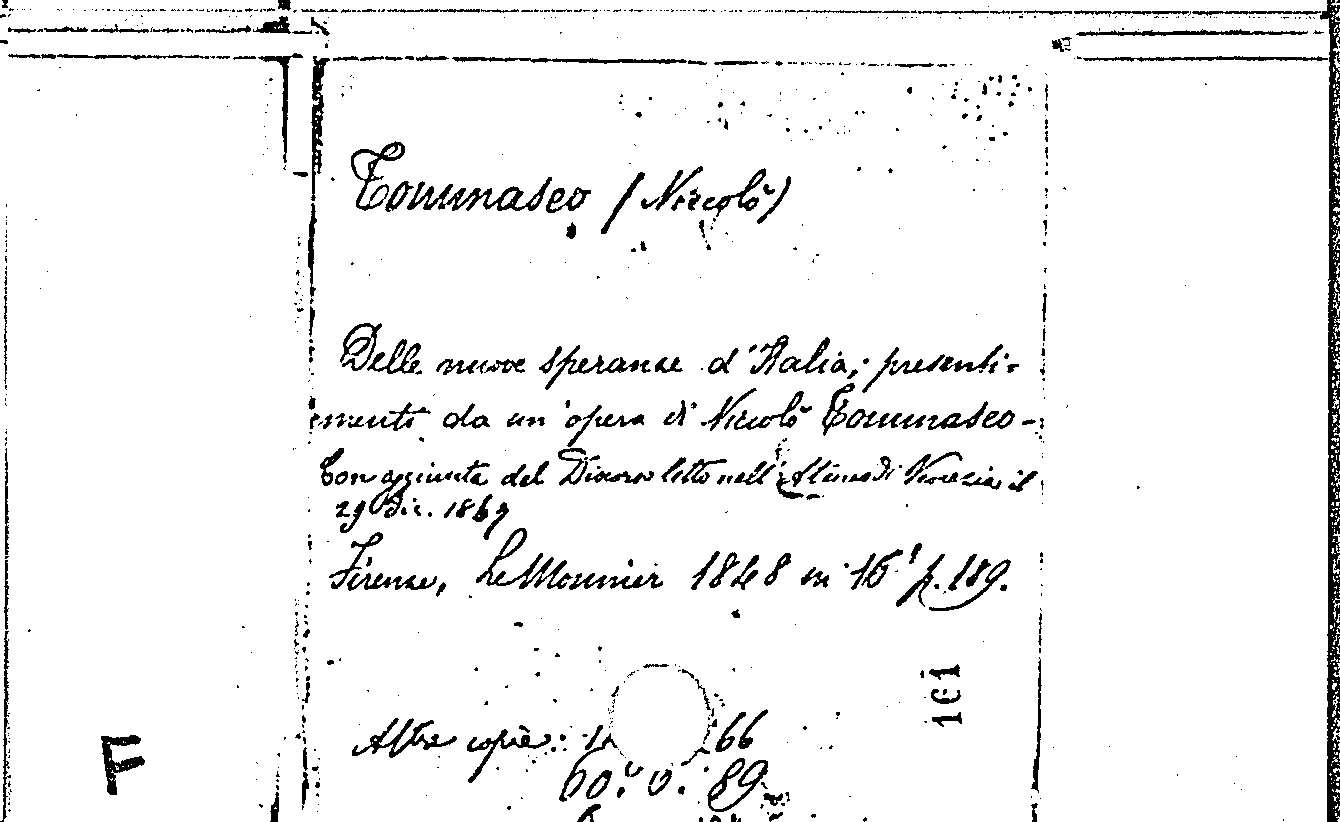 Tommaseo (Niccolò)
Delle nuove speranze d'Italia; presenti-
menti da un'opera di Niccolò Tommaseo -
Con aggiunta del Discorso letto nell'Ateneo di Venezia il
29 Dic. 1869
Firenze, Le Monnier 1848 in 16° p. 189.
101
Altre copie: 66
60. 0. 89
F